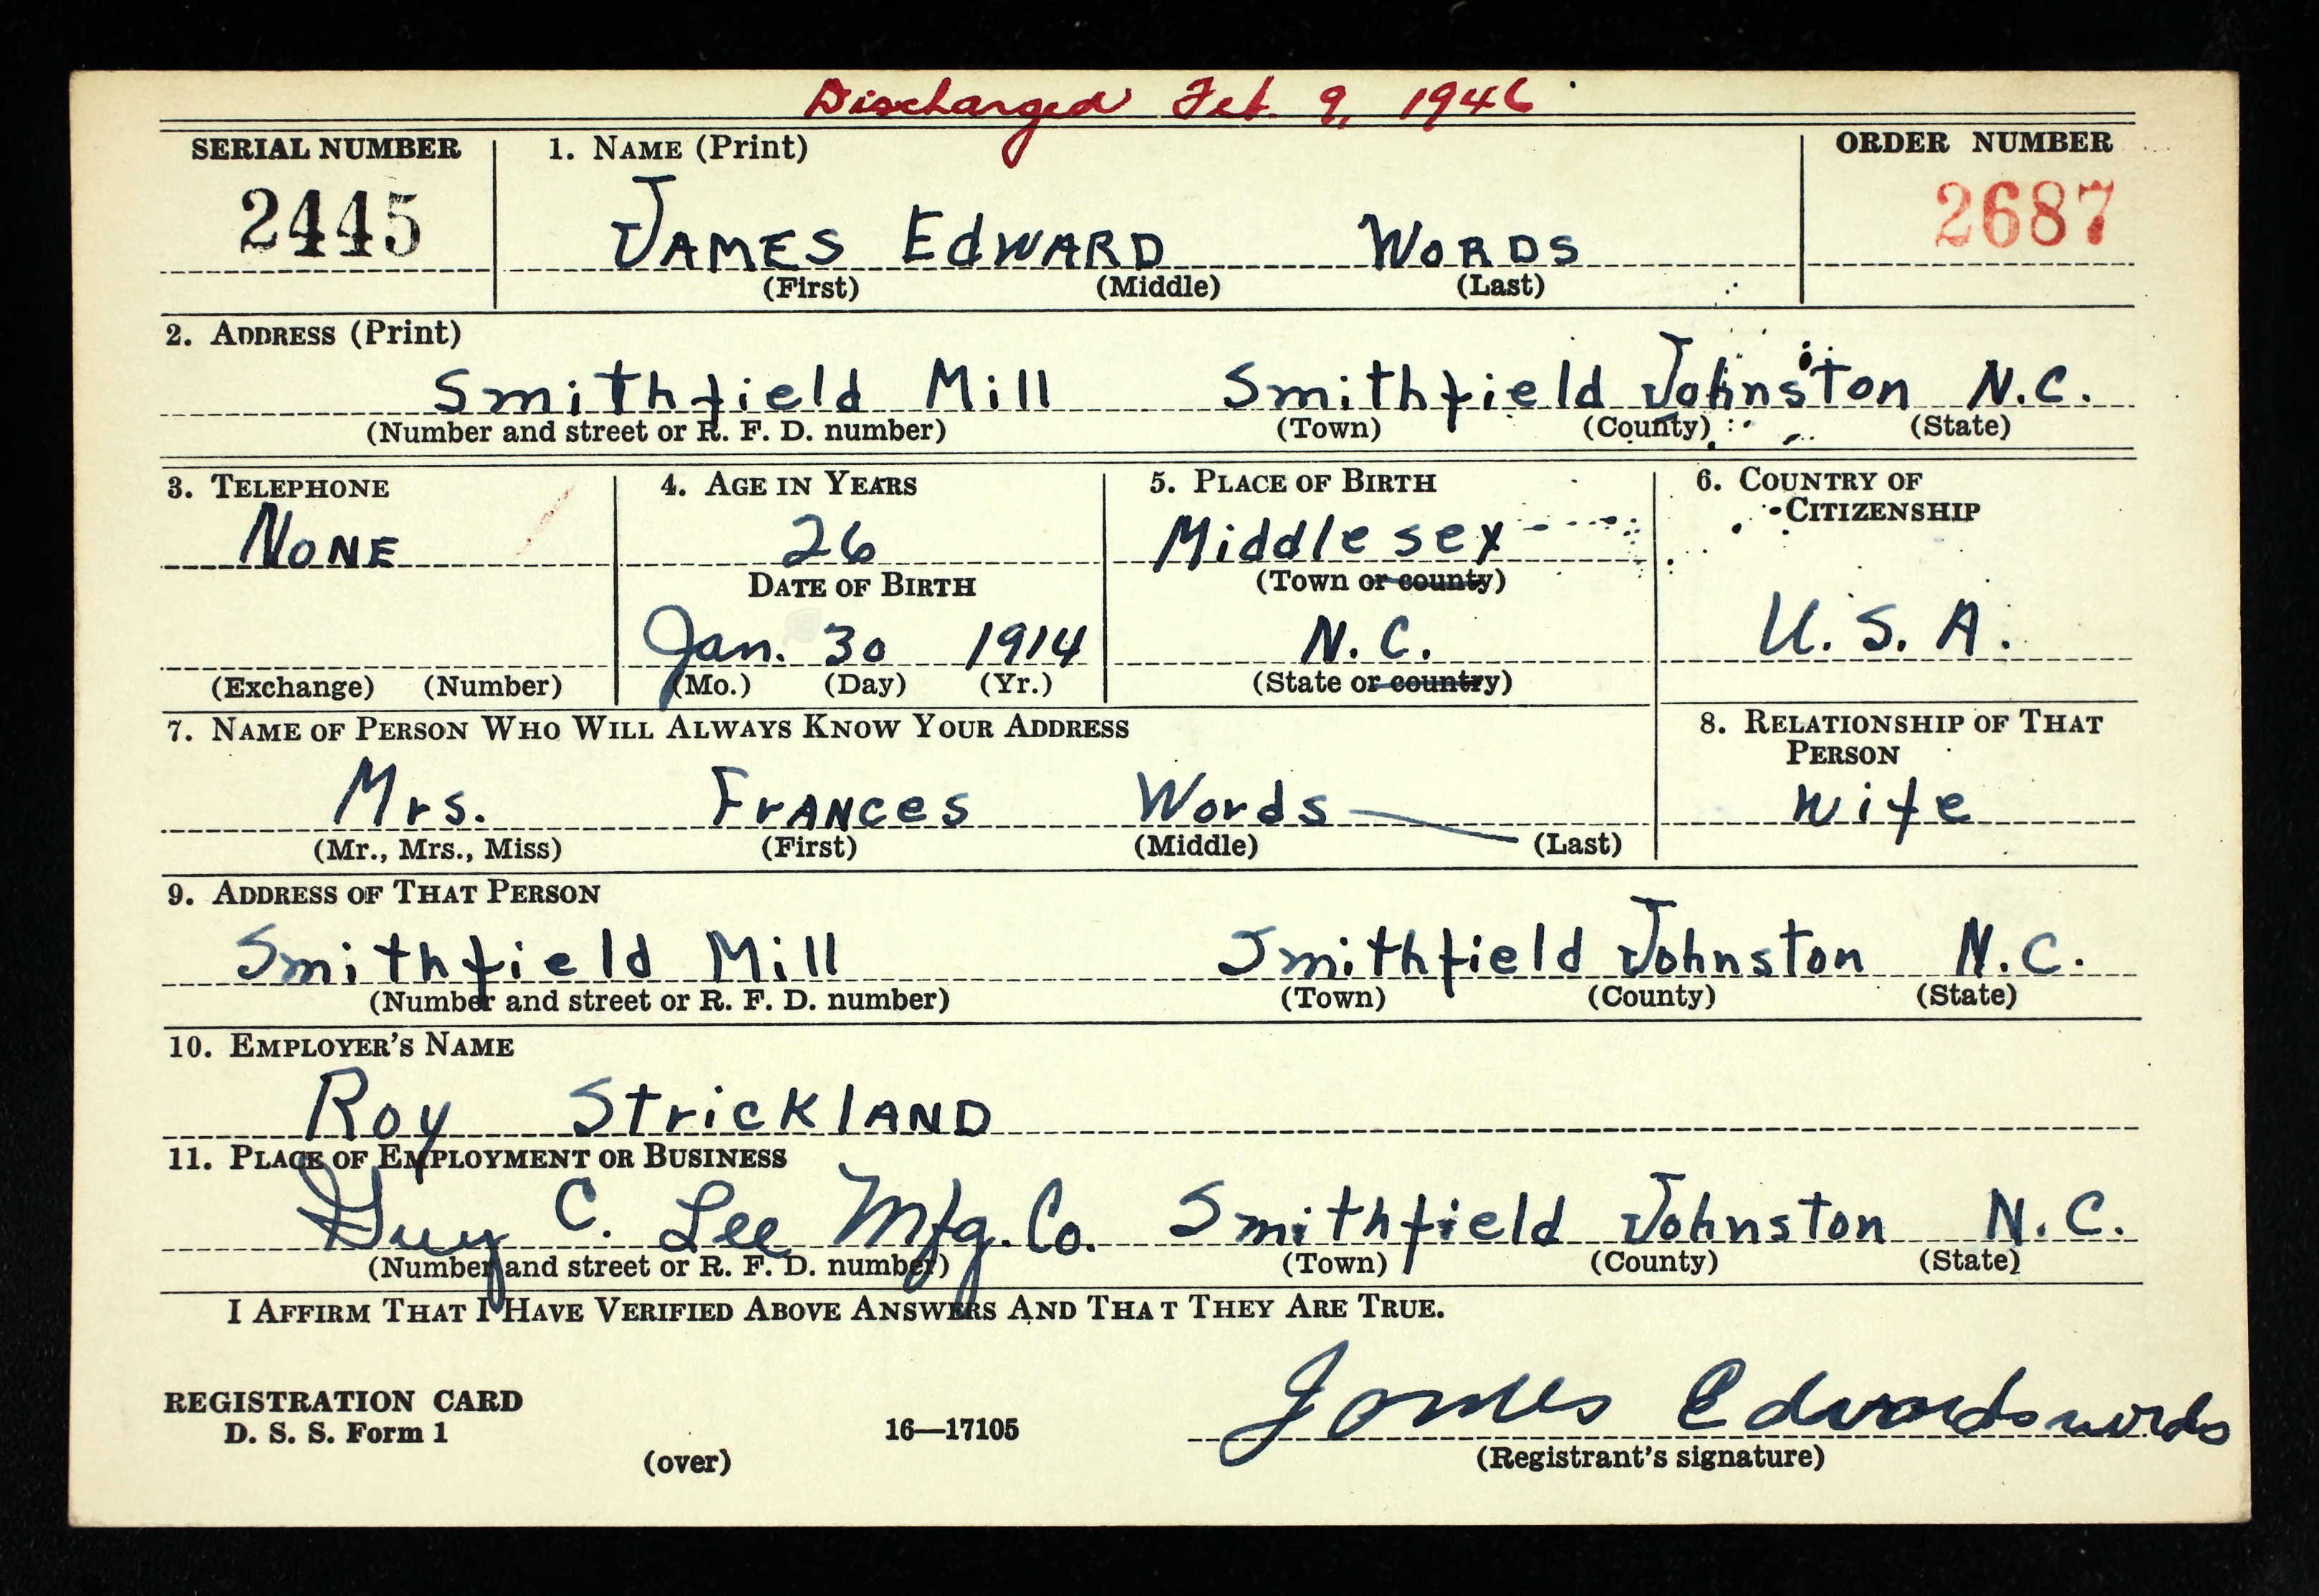 Discharged Feb. 9, 1946
SERIAL NUMBER 1. NAME (Print) ORDER NUMBER
2445 JAMES EDWARD WORDS 2687
(First) (Middle) (Last)
2. ADDRESS (Print)
Smithfield Mill Smithfield Johnston N.C.
(Number and street or R. F. D. number) (Town) (County) (State)
3. TELEPHONE 4. AGE IN YEARS 5. PLACE OF BIRTH 6. COUNTRY OF
CITIZENSHIP
NONE 26 Middlesex
DATE OF BIRTH (Town or county)
Jan. 30 1914 N.C. U.S.A.
(Exchange) (Number) (Mo.) (Day) (Yr.) (State or country)
7. NAME OF PERSON WHO WILL ALWAYS KNOW YOUR ADDRESS 8. RELATIONSHIP OF THAT
PERSON
Mrs. FrANCes Words wife
(Mr., Mrs., Miss) (First) (Middle) (Last)
9. ADDRESS OF THAT PERSON
Smithfield Mill Smithfield Johnston N.C.
(Number and street or R. F. D. number) (Town) (County) (State)
10. EMPLOYER'S NAME
Roy StricklAND
11. PLACE OF EMPLOYMENT OR BUSINESS
Guy C. Lee Mfg. Co. Smithfield Johnston N.C.
(Number and street or R. F. D. number) (Town) (County) (State)
I AFFIRM THAT I HAVE VERIFIED ABOVE ANSWERS AND THAT THEY ARE TRUE.
James Edwards words
REGISTRATION CARD
D. S. S. Form 1 16—17105
(over) (Registrant's signature)